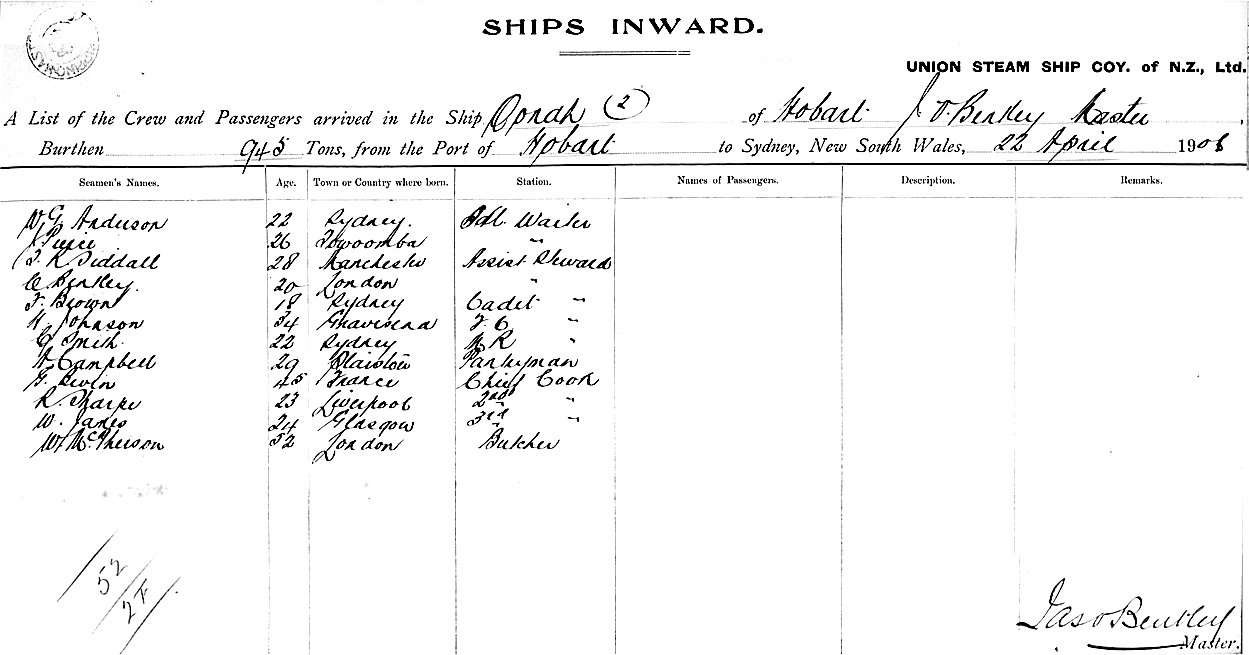 SHIPS INWARD.
UNION STEAM SHIP COY. of N.Z., Ltd.
A List of the Crew and Passengers arrived in the Ship Oonah (2) of Hobart J. O. Bentley Master,
Burthen 945 Tons, from the Port of Hobart to Sydney, New South Wales, 22 April 1906
Seamen's Names. Age. Town or Country where born. Station. Names of Passengers. Description. Remarks.
W G Anderson 22 Sydney. Waiter
26 Towoomba "
J. R Siddall 28 Manchester Assist Steward
C Bentley. 20 London "
F. Brown 18 Sydney Cadet "
H Johnson 34 Gravesend F. C "
C Smith 22 Sydney R "
A Campbell 29 Plaistow Pantryman
G. 45 France Chief Cook
R. Sharpe 23 Liverpool 2nd "
W. Janes 24 Glasgow 3rd "
W McPherson 52 London Butcher
52
27
Jas O Bentley
Master.